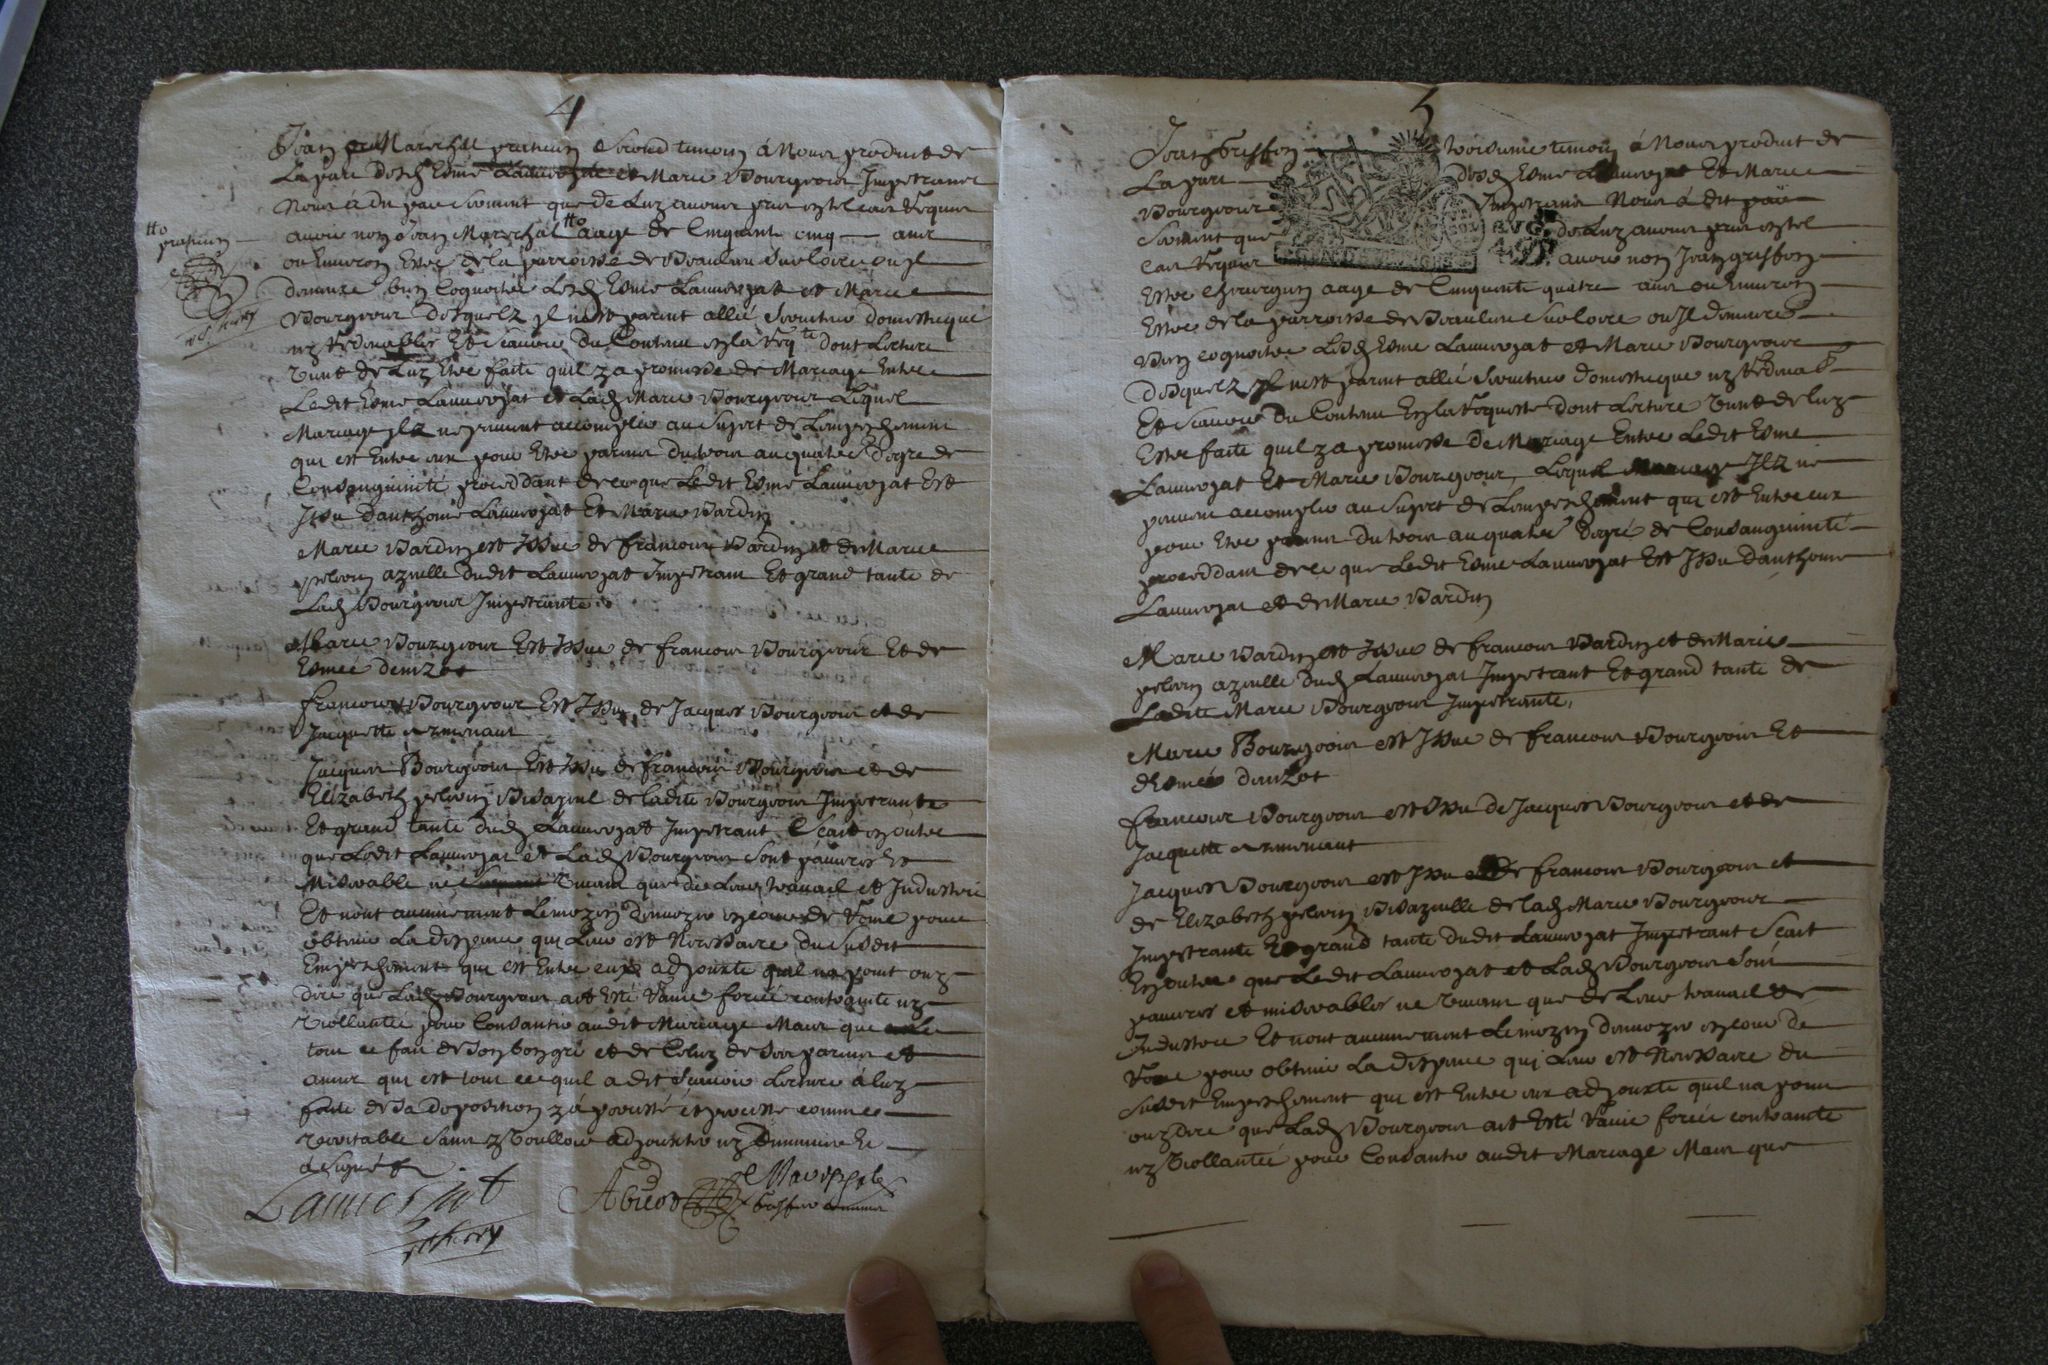 4
Jean Mareschal praticien Second temoin à Nous produit de
La part desd Esme Lauverjat et Marie Bourgeois Impetrans
Nous à dit par serment que de Luy avons prins en tel cas requis
avoir nom Jean Mareschal tto aage de Cinquante cinq ans
ou Environ Estre de la parroisse de Beaulieu sur loire ou jl
demeure bien Cognoistre Lesd Esme Lauverjat et Marie
Bourgeois Desquelz jl nest parent allié Serviteur domestique
ny redevable Et scavoir du Contenu en la reqte dont Lecture
vient de Luy Estre faite quil y a promesse de Mariage Entre
Ledit Esme Lauverjat et Lad Marie Bourgeois Lequel
Mariage jlz ne peuvent accomplir au sujet de Lempeschement
qui est Entre eux pour Estre parens du trois au quatre degre de
Consanguinité proceddant de ce que Ledit Esme Lauverjat Est
Issu danthoine Lauverjat Et Marie Bardin
tto
praticien
Marie Bardin est Issue de francois Bardin et de Marie
pelerin ayeulle dudit Lauverjat Impetrant Et grand tante de
Lad Bourgeois Impetrante
Marie Bourgeois Est Issue de francois Bourgeois Et de
Esmée denizot
francois Bourgeois Est Issu de Jacques Bourgeois et de
Jacquette
Jacques Bourgeois Est Issu de francois Bourgeois et de
Elizabeth pelerin Bisayeul de ladite Bourgeois Impetrante
Et grand tante dud Lauverjat Impetrant Scait en outre
que Ledit Lauverjat et Lad Bourgeois sont pauvres Et
Miserable ne vivans que de Leur travail et Industrie
Et nont aucunement Le moyen denvoyer en cour de Rome pour
obtenir La dispence qui Leur est Necessaire du susdit
Empeschement qui est Entre eux adjouste quil na point ouy
dire que Lad Bourgeois ait Esté Ravie forcée contrainte ny
viollantée pour Consantir audit Mariage Mais que Le
tout ce fait de son bon gré et de Celuy de ses parens et
amis qui est tout ce quil a dit scavoir Lecture à luy
faite de sa deposition y à persisté comme
veritable sans y vouloir adjouster ny diminuer Et
à signé
Lauverjat Mareschal
5
Jean Griffon troisieme temoin à Nous produit de
La part desd Esme Lauverjat Et Marie
Bourgeois Impetrans Nous à dit par
Serment que de Luy avons prins en tel
cas requis avoir nom Jean griffon
Estre chirurgien aage de Cinquente quatre ans ou Environ
Estre de la parroisse de Beaulieu sur Loire ou Jl demeure
Bien cognoistre Lesd Esme Lauverjat et Marie Bourgeois
Desquelz Jl nest parent allié Serviteur domestique ny redevab
Et scavoir du Contenu En la requeste dont Lecture vient de luy
Estre faite quil y a promesse de Mariage Entre Ledit Esme
Lauverjat Et Marie Bourgeois, Lequel Mariage Jlz ne
peuvent accomplir au sujet de Lempeschement qui est Entre eux
pour Estre parens du trois au quatre degré de Consanguinité
proceddant de ce que Ledit Esme Lauverjat Est Issu danthoine
Lauverjat et de Marie Bardin
Marie Bardin est Issue de francois Bardin et de Marie
pelerin ayeulle dud Lauverjat Impetrant Et grand tante de
Ladite Marie Bourgeois Impetrante,
Marie Bourgeois est Issue de francois Bourgeois Et
dEsmée denizot
francois Bourgeois est Issu de Jacques Bourgeois et de
Jacquette
Jacques Bourgeois est Issu de francois Bourgeois et
de Elizabeth pelerin Bisayeulle de lad Marie Bourgeois
Impetrante Et grand tante dudit Lauverjat Impetrant Scait
En outre que Ledit Lauverjat et Lad Bourgeois sont
pauvres et miserables ne vivans que de Leur travail et
Industrie Et nont aucunement Le moyen denvoyer en cour de
Rome pour obtenir La dispence qui Leur est Necessaire du
susdit Empeschement qui est Entre eux adjouste quil na point
ouy dire que Lad Bourgeois ait Esté Ravie forcée contrainte
ny viollantée pour Consantir audit Mariage Mais que